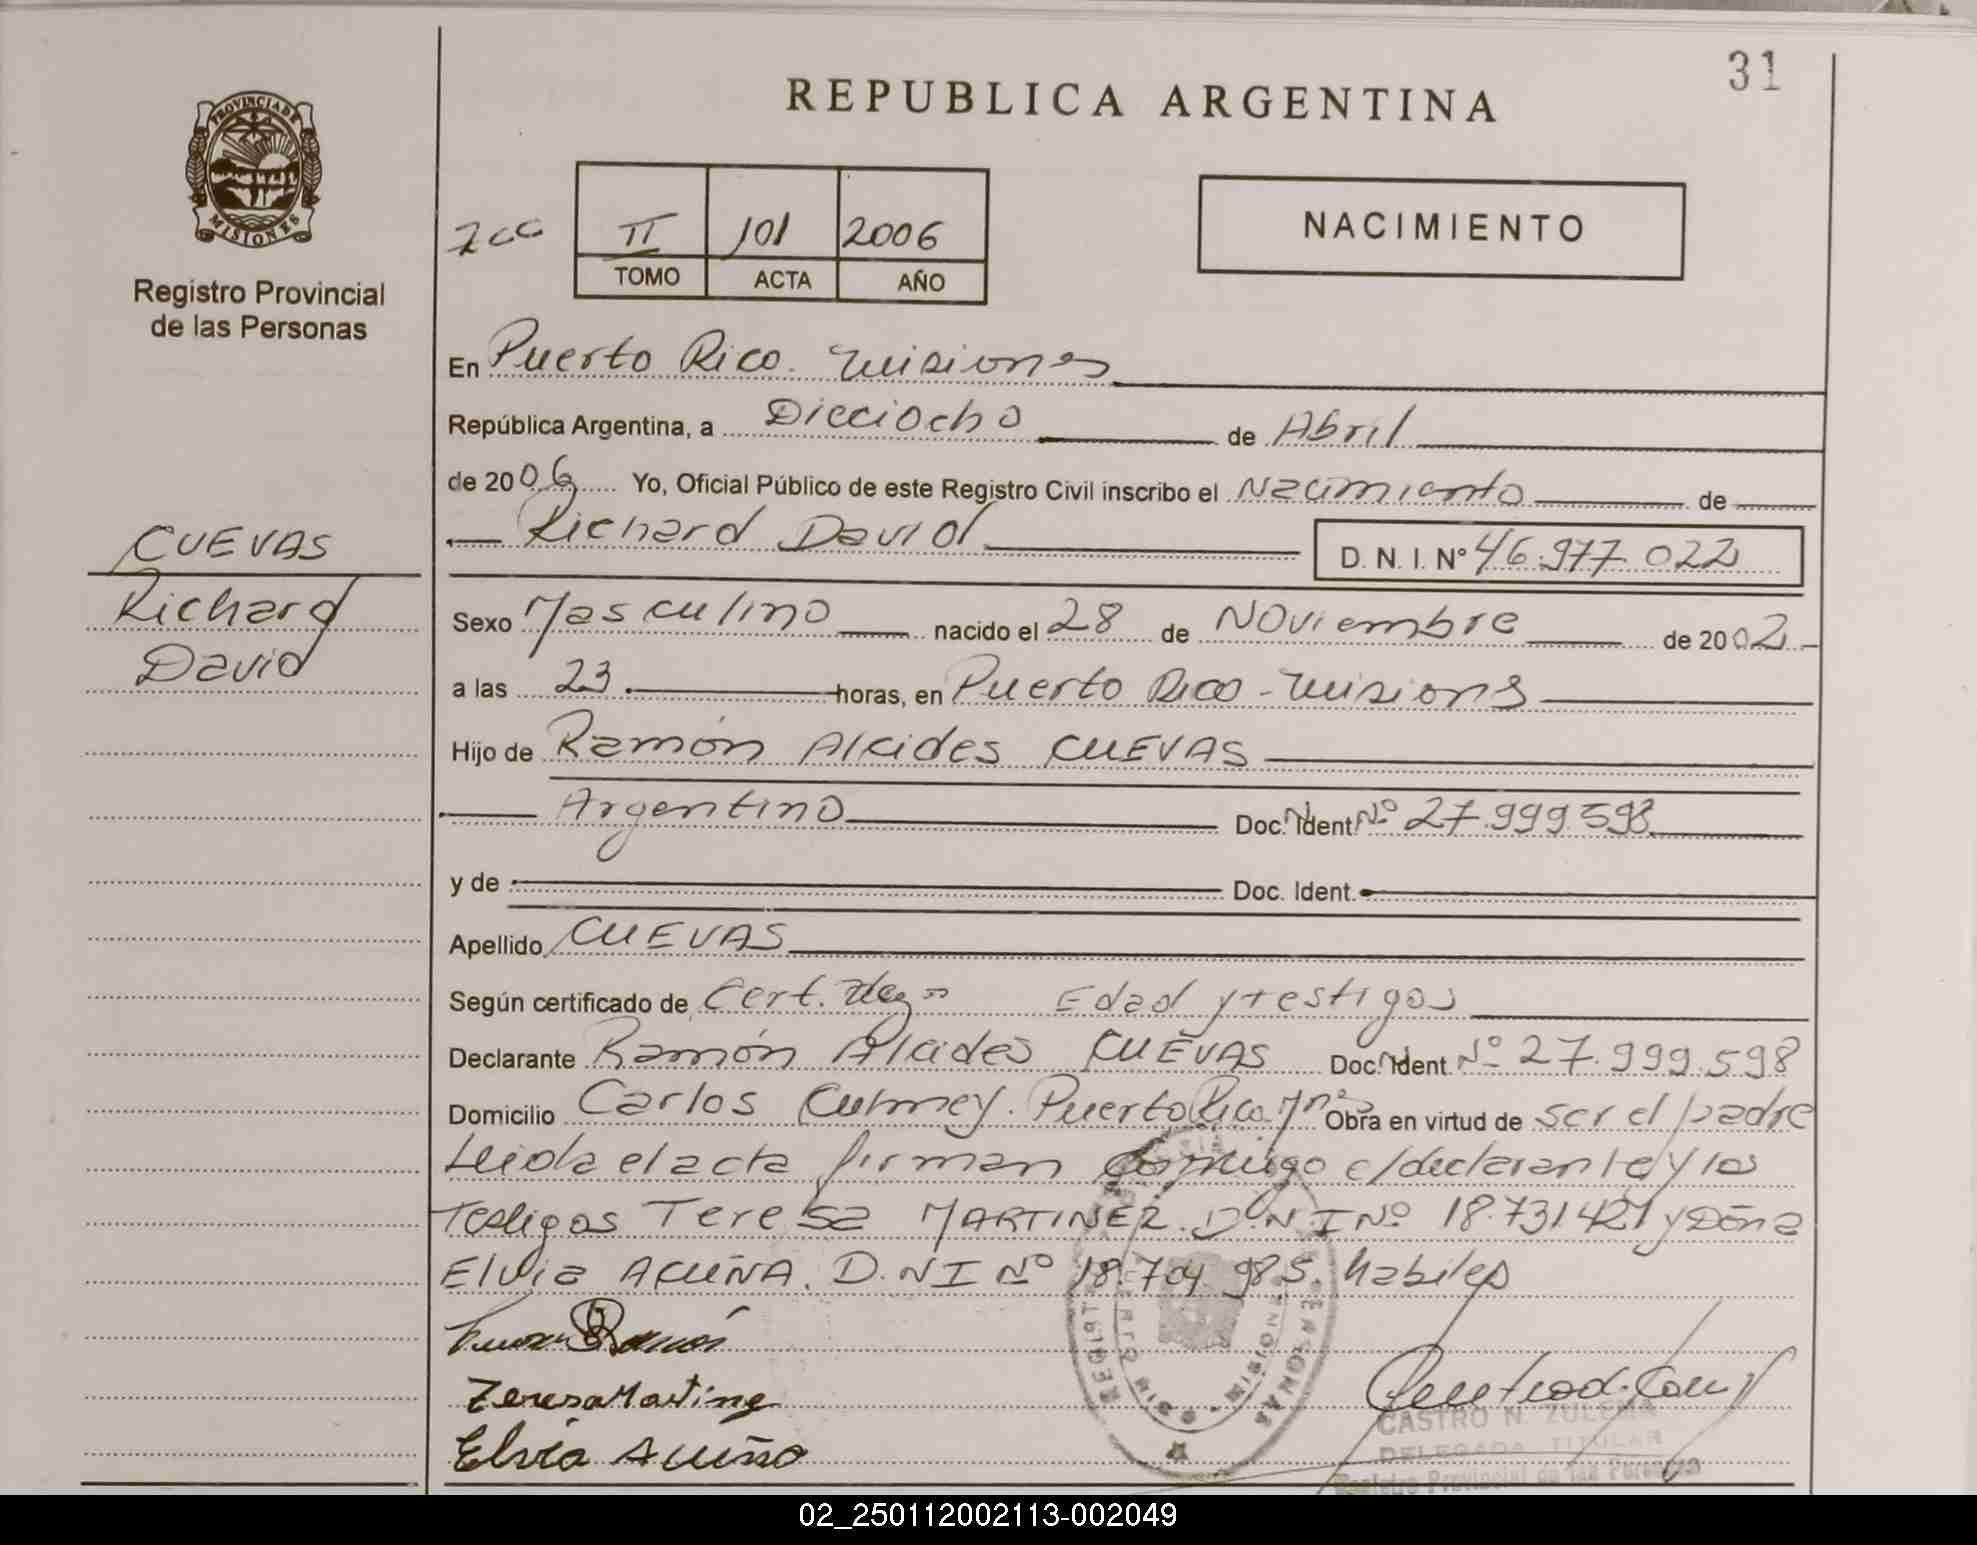 31
REPUBLICA ARGENTINA
PROVINCIA DE
MISIONES
Registro Provincial
de las Personas
II 101 2006
TOMO ACTA AÑO
NACIMIENTO
En Puerto Rico. Misiones
República Argentina, a Dieciocho de Abril
de 2006 Yo, Oficial Público de este Registro Civil inscribo el Nacimiento de
Richard David D. N. I. Nº 46.977.022
CUEVAS
Richard
David
Sexo Masculino nacido el 28 de Noviembre de 2002
a las 23 horas, en Puerto Rico - Misiones
Hijo de Ramón Alcides CUEVAS
Argentino Doc. Ident Nº 27.999.598
y de Doc. Ident.
Apellido CUEVAS
Según certificado de Cert. Edad y testigos
Declarante Ramón Alcides CUEVAS Doc. Ident Nº 27.999.598
Domicilio Carlos Culmey. Puerto Rico Mnes Obra en virtud de ser el padre
Leida el acta firman conmigo el declarante y los
Testigos Teresa MARTINEZ. D.N.I Nº 18.731.421 y Doña
Elvia ACUÑA. D.N I Nº 18.704.985. habiles
Ramón
Teresa Martine
Elvia Acuña
CASTRO N. ZULEMA
DELEGADA TITULAR
Registro Provincial de las Personas
02_250112002113-002049